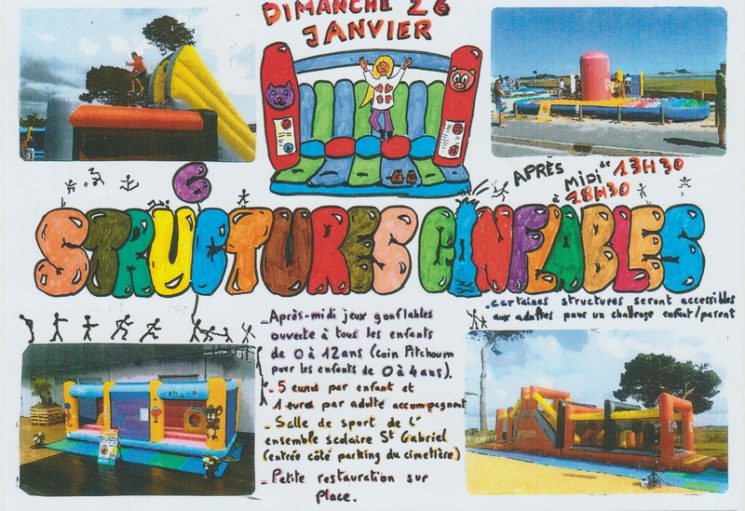 DIMANCHE 26
JANVIER
APRÈS MIDI de 13H30
à 18H30
6
STRUCTURES GONFLABLES
_Après-midi jeux gonflables
ouverte à tous les enfants
de 0 à 12ans (coin Pitchoum
pour les enfants de 0 à 4ans).
- 5 euros par enfant et
1 euros par adulte accompagnant
- Salle de sport de l'
ensemble scolaire St Gabriel
(entrée côté parking du cimetière)
- Petite restauration sur
place.
-certaines structures seront accessibles
aux adultes pour un challenge enfant/parent